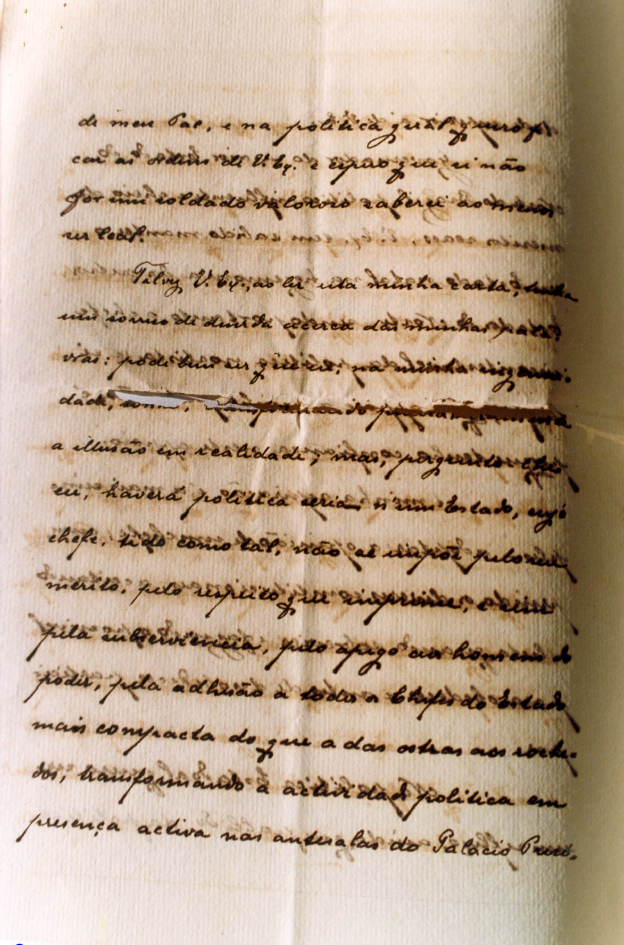 de meu Pae, e na politica geral quero
as ordens de V. Ex.ª e espero que si não
for um soldado valoroso saberei ao menos
ser leal.
Talvez V. Ex.ª, ao ler esta minha carta, tenha
um sorriso de duvida acerca das minhas pala-
vras: pode bem ser que eu, na minha ingenui-
dade,
a illusão em realidade; mas, pergunto
eu, haverá politica seria n'um Estado, cujo
chefe, tido como tal, não se impõe pelo seu
merito, pelo respeito que imprime, e sim
pela subserviencia, pelo apego aos homens do
poder, pela adhesão a todo o Chefe do Estado
mais compacta do que a das ostras aos roche-
dos, transformando a actividade politica em
presença activa nas antesalas do Palacio